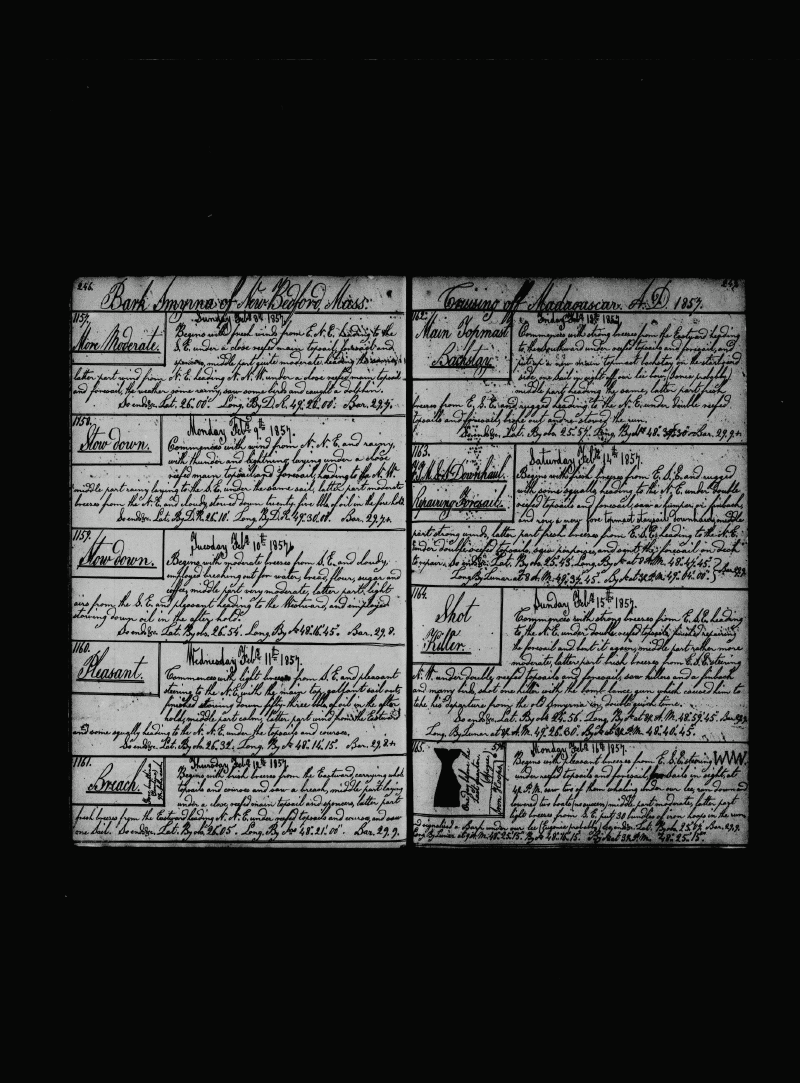 246.
Bark Smyrna of New Bedford, Mass:
1157.
More Moderate.
Sunday Feb. 8th 1857.
Begins with fresh winds from E.N.E. heading to the
S.E. under a close reefed main topsail, foresail and
spencer, middle part quite moderate, heading the same
latter part wind from N.E. heading N.N.W. under a close reefed main topsail
and foresail, the weather some rainy, saw some birds and caught a dolphin.
So ends &c. Lat. 26.00' Long. By D.R. 49.26.00' Bar. 29.9.
1158.
Stow down.
Monday Feb. 9th 1857.
Commences with wind from N.N.E. and rainy,
with thunder and lightning laying under a close
reefed main topsail and foresail, heading to the N.W.
middle part rainy laying to the S.E. under the same sail, latter part moderate
breezes from the N.E. and cloudy, stowed down twenty five bbls of oil in the fore hold.
So ends &c. Lat. By D.R. 26.10' Long. By D.R. 49.30.00' Bar. 29.7+
1159.
Stow down.
Tuesday Feb. 10th 1857.
Begins with moderate breezes from S.E. and cloudy,
employed breaking out for water, bread, flour, sugar and
coffee, middle part very moderate, latter part, light
airs from the S.E. and pleasant heading to the Westward, and employed
stowing down oil in the after hold.
So ends &c. Lat. By ob. 26.54' Long. By 48.16.45' Bar. 29.8.
1160.
Pleasant.
Wednesday Feb. 11th 1857.
Commences with light breezes from S.E. and pleasant
steering to the N.E. with the main top gallant sail out,
finished stowing down fifty three bbls of oil in the after
hold, middle part calm, latter part wind from the Eastward
and some squally heading to the N.E. under the topsails and courses,
So ends &c. Lat. By ob. 26.32' Long. By 48.14.15' Bar. 29.8+
1161.
Breach.
Thursday Feb. 12th 1857.
Begins with fresh breezes from the Eastward, carrying whole
topsails and courses and saw a breach, middle part laying
under a close reefed main topsail and spencer, latter part
fresh breezes from the Eastward heading N.N.E. under reefed topsails and courses, and saw
one sail. So ends &c. Lat. By ob. 26.05' Long. By 48.21.00' Bar. 29.9.
Cruising off Madagascar A.D. 1857.
1162.
Main Topmast
Backstay.
Friday Feb. 13th 1857.
Commences with strong breezes from the Eastward heading
to the Southward under reefed topsails and foresail, and
put up a new main topmast backstay on the starboard
side, one sail in sight from
middle part heading the same, latter part fresh
breezes from E.S.E. and rugged heading to the N.E. under double reefed
topsails and foresail,
So ends &c. Lat. By ob. 25.57' Long. By 48.30' Bar. 29.9+
1163.
Downhaul.
Repairing Foresail.
Saturday Feb. 14th 1857.
Begins with fresh breezes from E.S.E. and rugged
with some squally heading to the N.E. under double
reefed topsails and foresail, saw a jumper or finback
and rove a new fore topmast staysail downhaul, middle
part strong winds, latter part fresh breezes from E.S.E. heading to the N.E.
under double reefed topsails, and sent the foresail on deck
to repair. So ends &c. Lat. By ob. 25.43' Long. By at 8 A.M. 48.47.45'
Long. By Lunar at 8 A.M. 49.37.45' By at 3 P.M. 49.14.00'
1164.
Shot
Killer.
Sunday Feb. 15th 1857.
Commences with strong breezes from E.S.E. heading
to the N.E. under double reefed topsails, finished repairing
the foresail and bent it again, middle part rather more
moderate, latter part fresh breezes from E.S.E. steering
N.W. under double reefed topsails and foresail, saw killers and a finback
and many birds, shot one killer with the bomb lance gun which caused him to
take his departure from the old Smyrna in double quick time.
So ends &c. Lat. By ob. 24.56' Long. By at 8 A.M. 48.59.45' Bar. 29.9
Long. By Lunar at 8 A.M. 49.26.30' By at 3 P.M. 48.46.45'
1165.
Monday Feb. 16th 1857.
Begins with pleasant breezes from E.S.E. steering WNW.
under reefed topsails and foresail, sails in sight, at
4 P.M. saw two of them whaling under our lee, ran down and
lowered boats middle part moderate, latter part
light breezes from S.E. put 30 bundles of iron hoops in the run
and signalised a Bark under our lee. So ends &c. Lat. By ob. 25.07' Bar. 29.9.
Long. By Lunar at 9 A.M. 48.25.15' By 48.16.15' By at 3 P.M. 48.25.15'